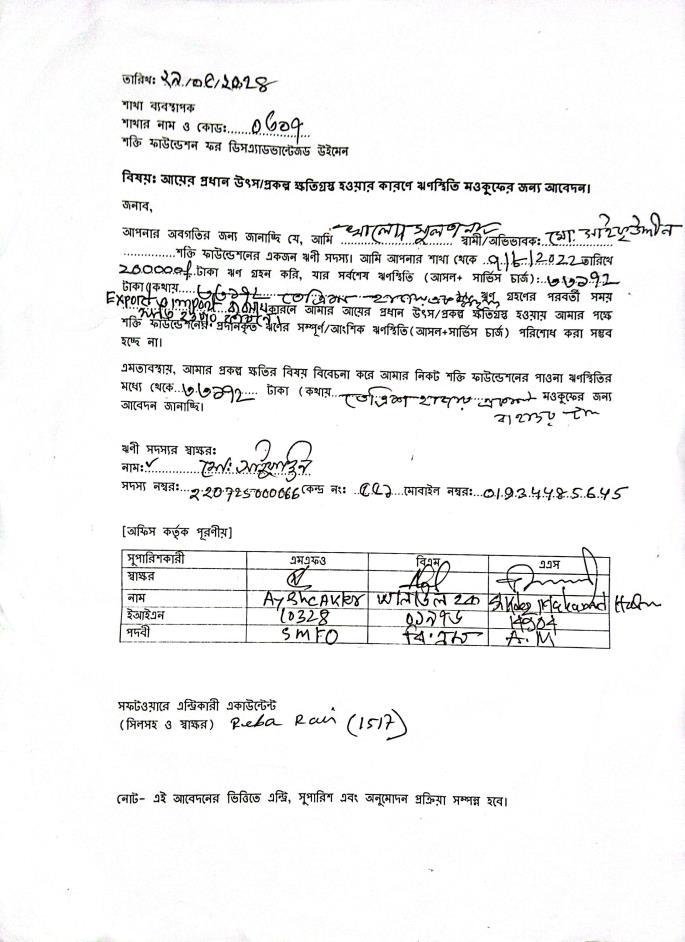 তারিখ: ২৯/০৫/২০২৪
শাখা ব্যবস্থাপক
শাখার নাম ও কোড:......০৬০৭
শক্তি ফাউন্ডেশন ফর ডিসএ্যাডভান্টেজড উইমেন
বিষয়: আয়ের প্রধান উৎস/প্রকল্প ক্ষতিগ্রস্থ হওয়ার কারণে ঋণস্থিতি মওকুফের জন্য আবেদন।
জনাব,
আপনার অবগতির জন্য জানাচ্ছি যে, আমি খালেদা সুলতানা স্বামী/অভিভাবক: মো: সাইফুউদ্দীন
শক্তি ফাউন্ডেশনের একজন ঋণী সদস্য। আমি আপনার শাখা থেকে ৭/৮/2022 তারিখে
200000/ টাকা ঋণ গ্রহন করি, যার সর্বশেষ ঋণস্থিতি (আসল+ সার্ভিস চার্জ):৩৩১৭২
টাকা (কথায় ৩৩১৭২ তেত্রিশ হাজার ঋণ গ্রহণের পরবর্তী সময়
Export import কারনে আমার আয়ের প্রধান উৎস/প্রকল্প ক্ষতিগ্রস্ত হওয়ায় আমার পক্ষে
শক্তি ফাউন্ডেশনের প্রদানিকৃত ঋণের সম্পূর্ণ/আংশিক ঋণস্থিতি(আসল+সার্ভিস চার্জ) পরিশোধ করা সম্ভব
হচ্ছে না।
এমতাবস্থায়, আমার প্রকল্প ক্ষতির বিষয় বিবেচনা করে আমার নিকট শক্তি ফাউন্ডেশনের পাওনা ঋণস্থিতির
মধ্যে থেকে..৩৩১৭২.... টাকা (কথায় তেত্রিশ হাজার একশত মওকুফের জন্য
বাহাত্তর টাকা
আবেদন জানাচ্ছি।
ঋণী সদস্যর স্বাক্ষর:
নাম: মো: সাইফুদ্দিন
সদস্য নম্বর: 220725000066 কেন্দ্র নং: মোবাইল নম্বর: 01934485645
[অফিস কর্তৃক পূরণীয়]
সুপারিশকারী এমএফও বিএম এএস
স্বাক্ষর
নাম AyshCAkter আনিছুল হক Haider
ইআইএন 10328 ০১৯৭৬ 14904
পদবী SMFO বি:এম A.M
সফটওয়ারে এন্ট্রিকারী একাউন্টেন্ট
(সিলসহ ও স্বাক্ষর) Reba Rani (1517)
নোট- এই আবেদনের ভিত্তিতে এন্ট্রি, সুপারিশ এবং অনুমোদন প্রক্রিয়া সম্পন্ন হবে।